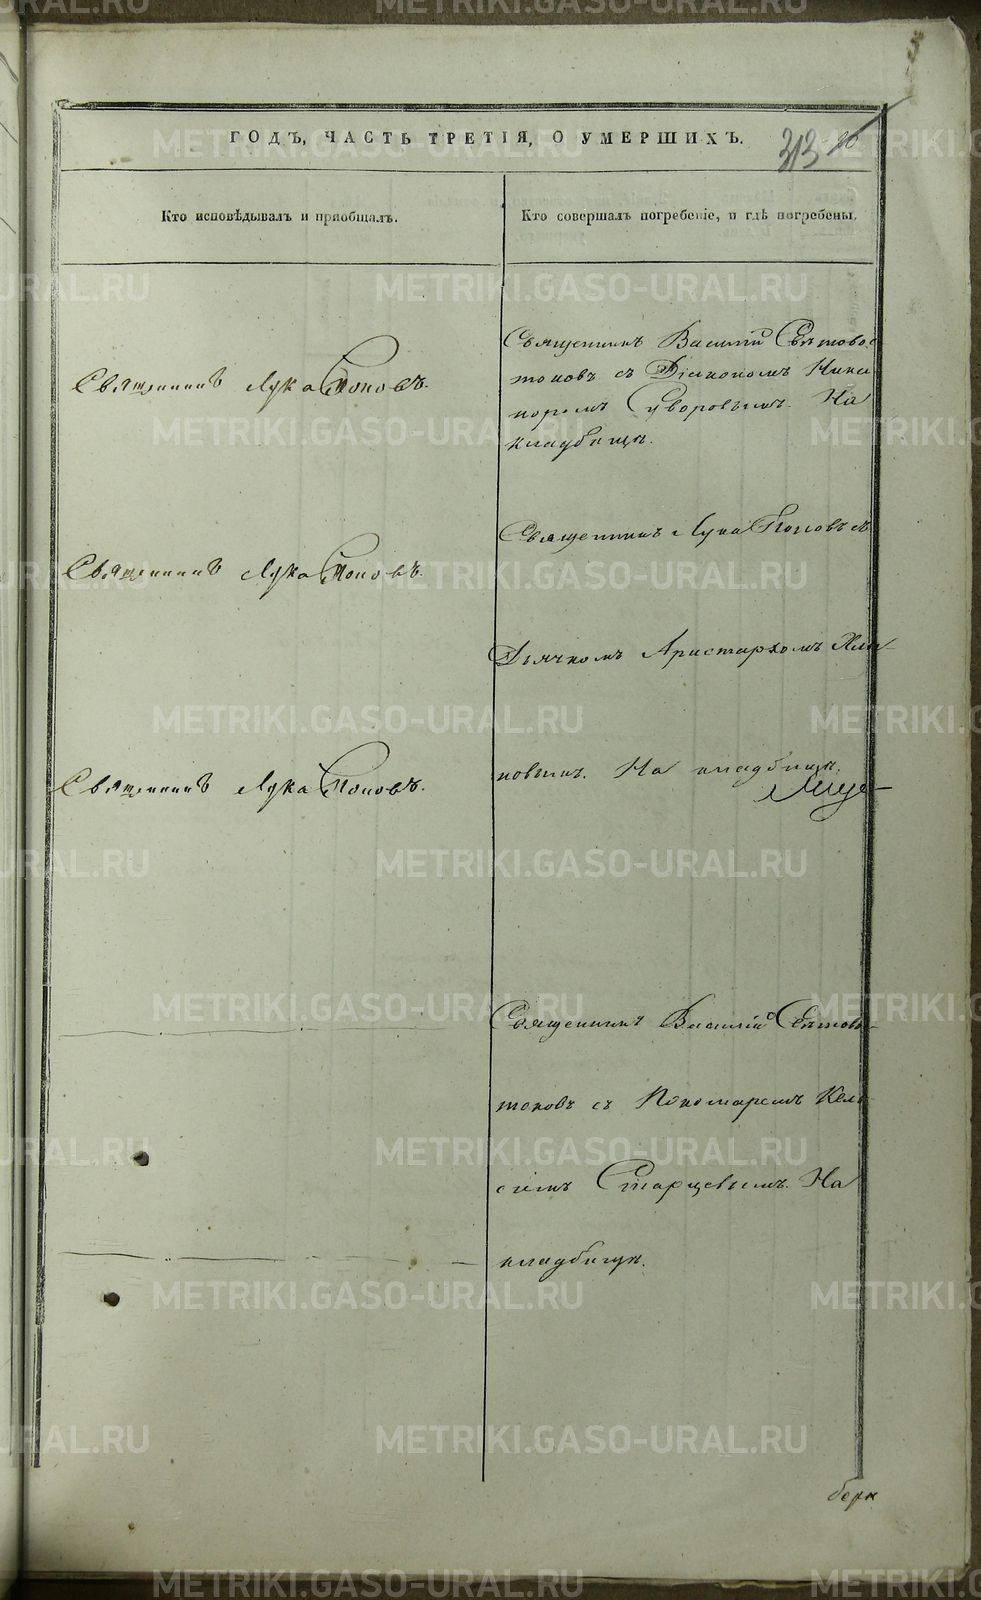 ГОДЪ, ЧАСТЬ ТРЕТІЯ, О УМЕРШИХЪ.
313
Кто исповѣдывалъ и пріобщалъ.
Кто совершалъ погребеніе, и гдѣ погребены.
Священникъ Лука Поповъ.
Священникъ Василій Свѣтово
токовъ съ Діакономъ Ника
норомъ Суворовымъ. На
кладбищѣ.
Священникъ Лука Поповъ.
Священникъ Лука Поповъ съ
Дьячкомъ Аристархомъ
Священникъ Лука Поповъ.
новымъ. На кладбищѣ.
Священникъ Василій Свѣтово-
токовъ съ Пономаремъ Кель
сіемъ Старцевымъ. На
кладбищѣ.
METRIKI.GASO-URAL.RU